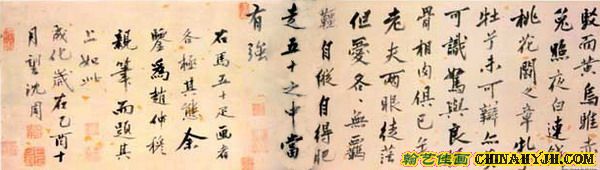 駁而黃烏騅赤
兔照夜白連
桃花闌之章牝
牡未可辯亦
可識駑與良
骨相肉俱已
老夫兩眼徒茫
但愛各各無羈
韁自縱自得肥
走五十之中當
有強
右馬五十疋畫者
各極其態余
鑒為趙仲穆
親筆而題其
上如此
成化歲在乙酉十
月望沈周
翰艺佳画
WWW.CHINAHYJH.COM